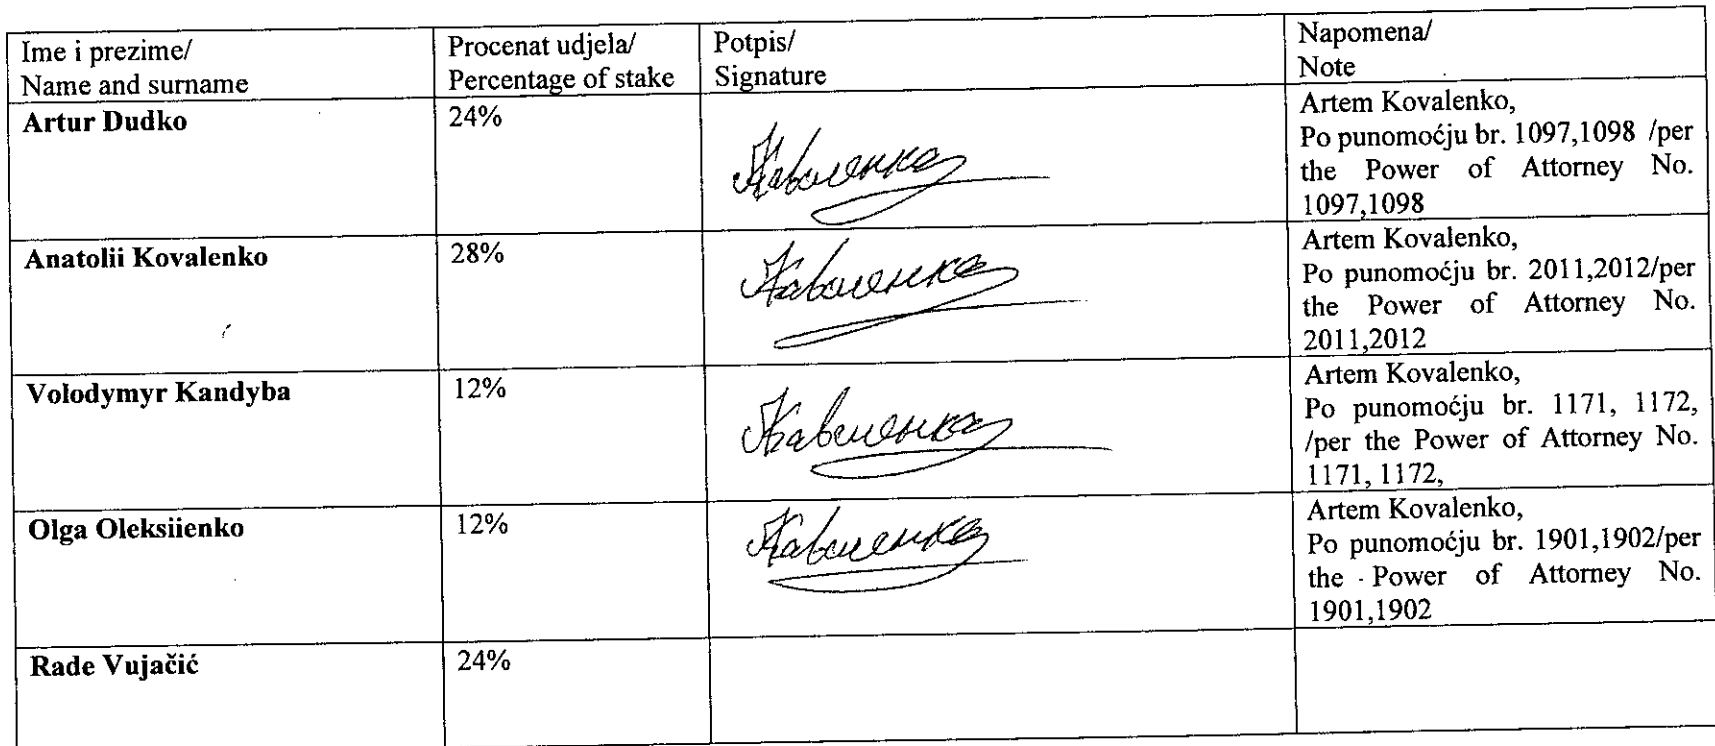 Ime i prezime/
Name and surname
Procenat udjela/
Percentage of stake
Potpis/
Signature
Napomena/
Note
Artur Dudko
24%
Artem Kovalenko,
Po punomoćju br. 1097,1098 /per
the Power of Attorney No.
1097,1098
Anatolii Kovalenko
28%
Artem Kovalenko,
Po punomoćju br. 2011,2012/per
the Power of Attorney No.
2011,2012
Volodymyr Kandyba
12%
Artem Kovalenko,
Po punomoćju br. 1171, 1172,
/per the Power of Attorney No.
1171, 1172,
Olga Oleksiienko
12%
Artem Kovalenko,
Po punomoćju br. 1901,1902/per
the Power of Attorney No.
1901,1902
Rade Vujačić
24%